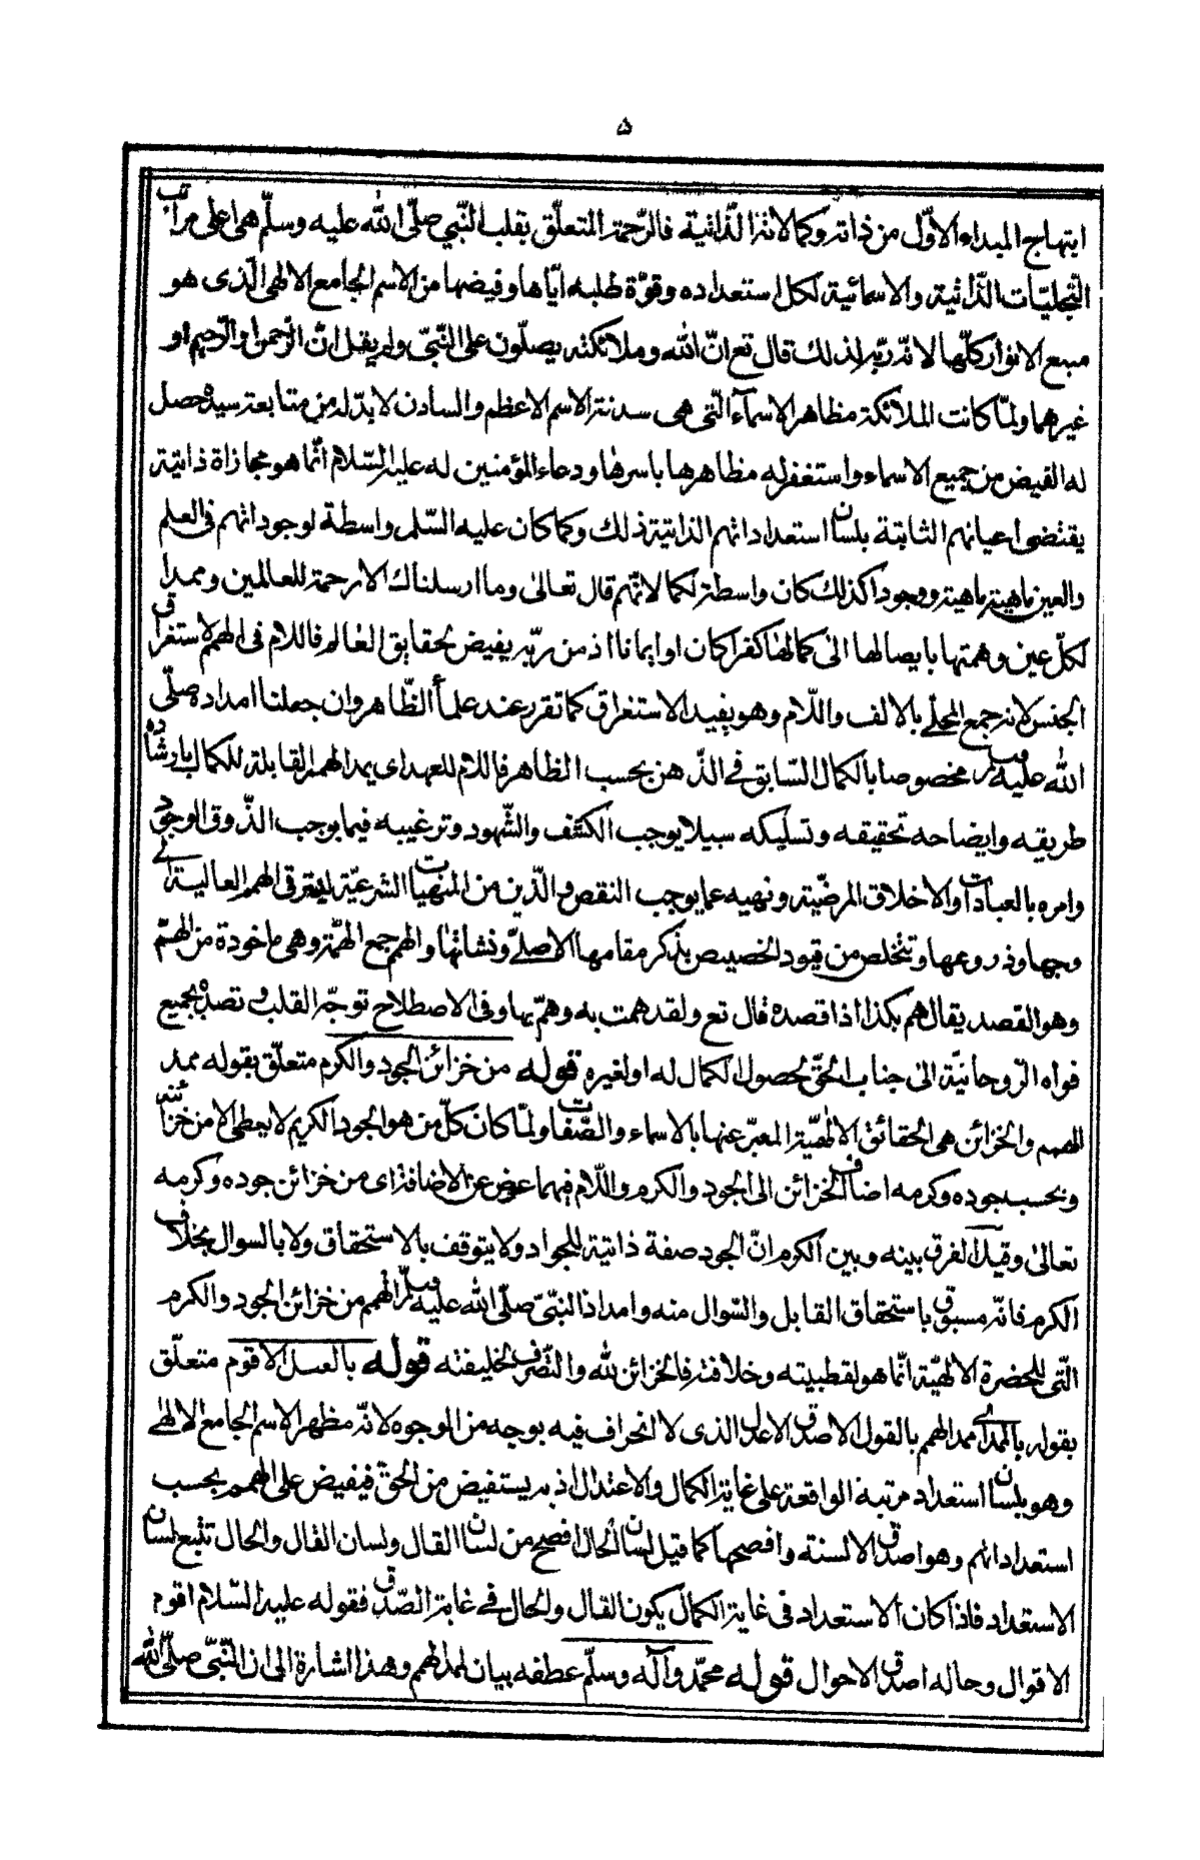 ٥
ابتهاج المبداء الاوّل من ذاته وكمالاته الذّاتية فالرّحمة المتعلّق بقلب النّبي صلّى الله عليه وسلّم هى اعلى مراتب
التجليّات الذّاتية والاسمائية لكمال استعداده وقوّة طلبه ايّاها وفيضها من الاسم الجامع الالهى الّذى هو
منبع الانوار كلّها لانّه ربّه لذلك قال تع انّ الله وملائكته يصلّون على النّبىّ ولم يقل انّ الرّحمن والرّحيم او
غيرهما ولمّا كانت الملائكة مظاهر الاسمآء الّتى هى سدنة الاسم الاعظم والسادن لا بدّ له من متابعة سيده حصل
له الفيض من جميع الاسماء واستغفر له مظاهرها باسرها ودعاء المؤمنين له عليه السّلام انّما هو مجازاة ذاتية
يقتضى اعيانهم الثابتة بلسان استعداداتهم الذاتية ذلك وكما كان عليه السّلم واسطة لوجوداتهم فى العلم
والعين ماهية ماهية ووجودا كذلك كان واسطة لكمالاتهم قال تعالى وما ارسلناك الا رحمة للعالمين وممدا
لكلّ عين وهمتها بايصالها الى كمالها كفرا كان او ايمانا اذ من ربّه يفيض لحقايق العالم فاللام فى الهمم لاستغراق
الجنس لانه جمع المحلى بالالف واللّام وهو يفيد الاستغراق كما تقرر عند علمأ الظّاهر وان جعلنا امداده صلّى
الله عليه وسلم مخصوصا بالكمال السّابق فى الذّهن بحسب الظاهر فاللام للعهد اى يمد الهمم القابلة للكمال بارشاده
طريقه وايضاحه تحقيقه وتسليكه سبيلا يوجب الكشف والشّهود وترغيبه فيما يوجب الذّوق الوجود
وامره بالعبادات والاخلاق المرضيّة ونهيه عما يوجب النقص والذّين من المنهيات الشرعيّة ليترقى الهمم العالية الى
وجها وذروعها وتتخلص من قيود الخصيص بذكر مقامها الاصلىّ ونشاتها والهمم جمع الهمّة وهى ماخوذة من الهمّ
وهو القصد يقال هم بكذا اذا قصده قال تع ولقد همت به وهمّ بها وفى الاصطلاح توجّه القلب وقصده بجميع
قواه الرّوحانيّة الى جناب الحقّ لحصول الكمال له او لغيره قوله من خزائن الجود والكرم متعلّق بقوله ممد
الهمم والخزائن هى الحقائق الالهيّة المعبّر عنها بالاسماء والصّفات ولمّا كان كلّ من هو الجود الكريم لا يعطى الا من خزائنه
وبحسب جوده وكرمه اضاف الخزائن الى الجود والكرم واللّام فيهما عوض عن الاضافة اى من خزائن جوده وكرمه
تعالى وقيل الفرق بينه وبين الكرم انّ الجود صفة ذاتية للجواد ولا يتوقف بالاستحقاق ولا بالسوال بخلاف
الكرم فانّه مسبوق باستحقاق القابل والسّوال منه وامداد النبىّ صلّى الله عليه وسلّم الهمم من خزائن الجود والكرم
الّتى للحضرة الالهيّة انّما هو لقطبيته وخلافته فالخزائن لله والتّصرف لخليفته قوله بالقيل الاقوم متعلّق
بقوله بالممد اى ممد الهمم بالقول الاصدق الاعدل الذى لا انحراف فيه بوجه من الوجوه لانّه مظهر الاسم الجامع الالهى
وهو بلسان استعداد مرتبة الواقعة على غاية الكمال والاعتدال اذ به يستفيض من الحقّ فيفيض على الهمم بحسب
استعداداتهم وهو اصدق الالسنة وافصحها كما قيل لسان الحال افصح من لسان القال ولسان القال والحال تتبع لسان
الاستعداد فاذا كان الاستعداد فى غاية الكمال يكون القال والحال فى غاية الصّدق فقوله عليه السّلام اقوم
الاقوال وحاله اصدق الاحوال قوله محمّد وآله وسلّم عطفه بيان لممد الهمم وهذا اشارة الى ان النّبىّ صلّى الله